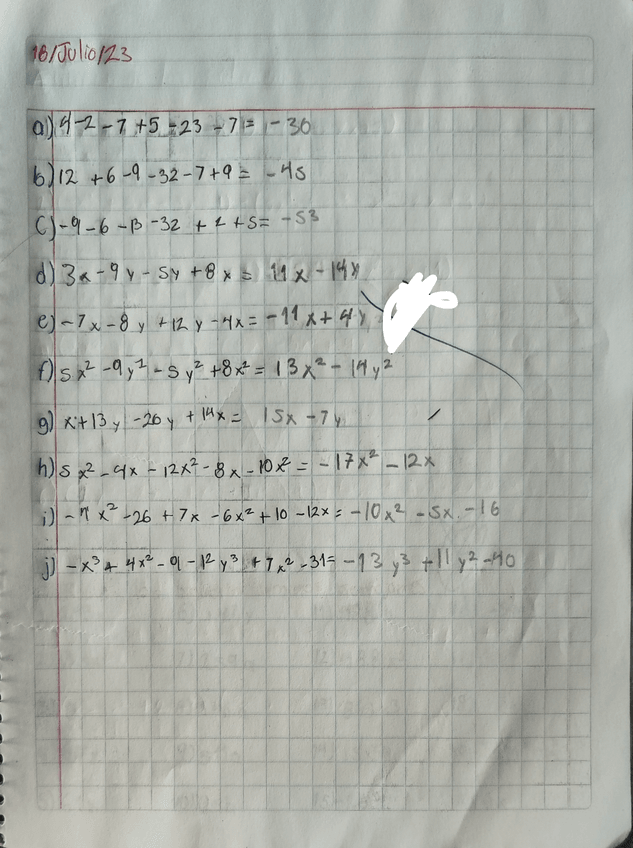 18/Julio/23
a) 4-2-7+5-23-7= -30
b) 12 +6-9-32-7+9= -45
c) -9-6-13-32 +2+5= -53
d) 3x-9y-5y+8x= 11x-14y
e) -7x-8y+12y-4x= -11x+4y
f) 5x²-9y²-5y²+8x²= 13x²-14y²
g) x+13y-26y+14x= 15x-7y
h) 5x²-4x-12x²-8x-10x²= -17x²-12x
i) -4x²-26+7x-6x²+10-12x= -10x²-5x-16
j) -x³+4x²-9-12y³+7x²-31= -13y³+11y²-40